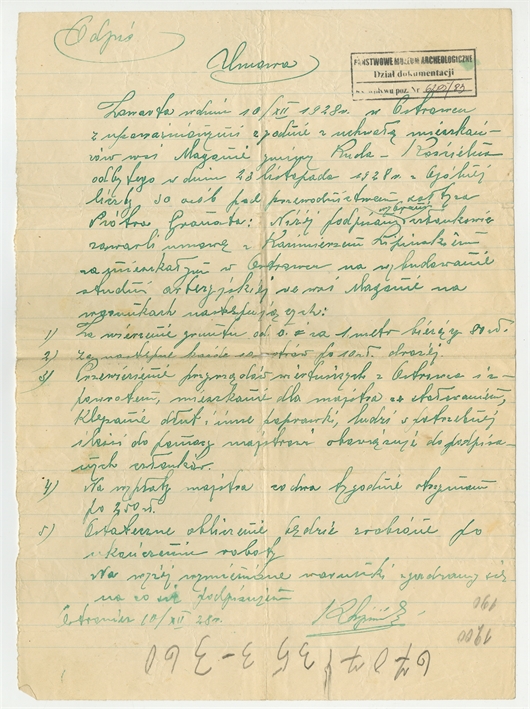 Odpis
Umowa
PAŃSTWOWE MUZEUM ARCHEOLOGICZNE
Dział dokumentacji
wpływu poz. Nr
Zawarta w dniu 10/XII 1928 r. w Ostrowcu
z upoważnienia zgodnie z uchwałą mieszkań-
ców wsi Magonie gminy Ruda - Kościelna
odbytego w dniu 23 listopada 1928 r. z ogólnej
liczby 30 osób pod przewodnictwem sołtysa
Piotra Granata: Niżej podpisani członkowie
zawarli umowę z Kazimierzem Lipińskim
zamieszkałym w Ostrowcu na wybudowanie
studni artezyjskiej we wsi Magonie na
warunkach następujących:
1) Za wiercenie gruntu od 0. za 1 metr bieżący 80 zł.
2) Za następne każde metrów po 10 zł. drożej.
3) Przewiezienie przyrządów wiertniczych z Ostrowca i z
powrotem, mieszkanie dla majstra ze stołowaniem,
klepanie dłut i inne poprawki, ludzi w potrzebnej
ilości do pomocy majstrowi obowiązuje do podpisa-
nych członków.
4) Na wypłaty majstra co dwa tygodnie otrzymam
po 250 zł.
5) Ostateczne obliczenie będzie zrobione po
ukończeniu roboty
Na wyżej wymienione warunki zgadzamy się
na co się podpisujem
Ostrowiec 10/XII 28 r.
190
1200